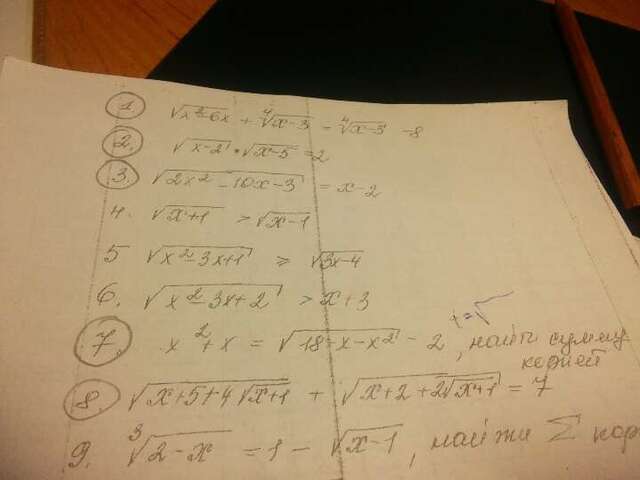 1. √(x²-6x) + ⁴√(x-3) = ⁴√(x-3) -8
2. √(x-2) * √(x-5) = 2
3. √(2x² - 10x - 3) = x - 2
4. √(x+1) > √(x-1)
5 √(x²-3x+1) ≥ √(3x-4)
6. √(x²-3x+2) > x+3
t=√
7. x² + x = √(18-x-x²) - 2, найти сумму
корней
8. √(x+5+4√(x+1)) + √(x+2+2√(x+1)) = 7
9. ³√(2-x) = 1 - √(x-1), найти Σ кор